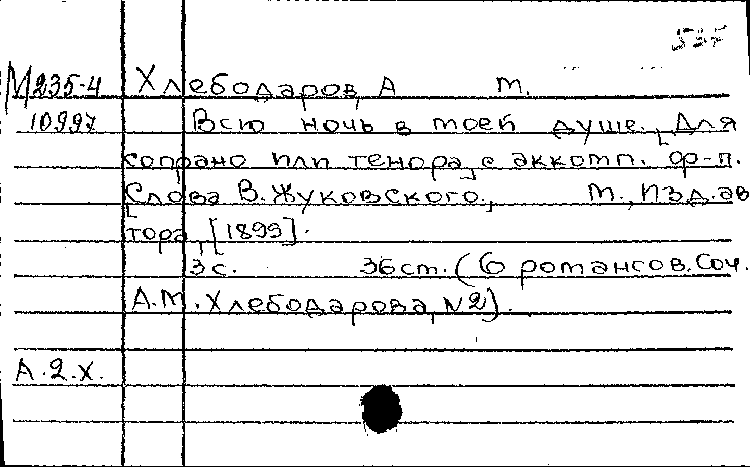 М235-4 Хлебодаров, А М.
10997 Всю ночь в моей душе. [Для
сопрано или тенора] с аккомп. ф-п.
Слова В. Жуковского. М., Изд. ав
тора, [1899].
3 с. 36 ст. (6 романсов. Соч.
А.М. Хлебодарова, №2).
А.2.х.